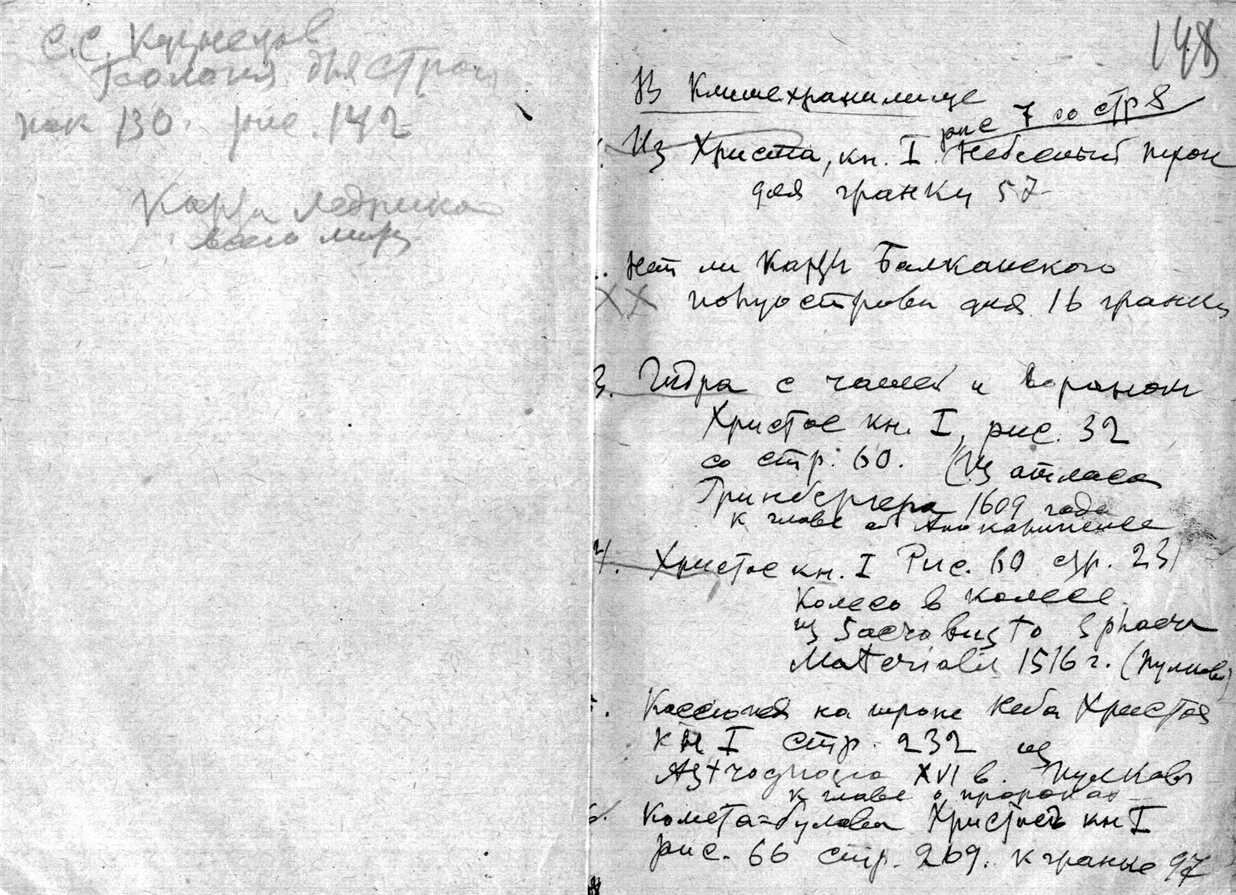 С.С. Кузнецов
Геология для строи
как 130. рис. 142
Карта ледника
всего мира
148
В Клишехранилище
рис 7 со стр 8
Из Христа, кн. I. Небесный трон
для гранки 57
Нет ли карты Балканского
XX полуострова для 16 гранки
3. Гидра с чашей и вороном
Христос кн. I, рис. 32
со стр. 60. (Из атласа
Гринбергера 1609 года
к главе об Апокалипсисе
4. Христос кн. I Рис. 60 стр. 231
Колесо в колесе
из Sacrobusto Sphaera
Materialis 1516 г. (Пулково)
Кассиопея на троне неба Христос
кн I стр. 232 из
XVI в. Пулково
к главе о пророках
6. Комета-булава Христос кн I
рис. 66 стр. 269. к гранке 97